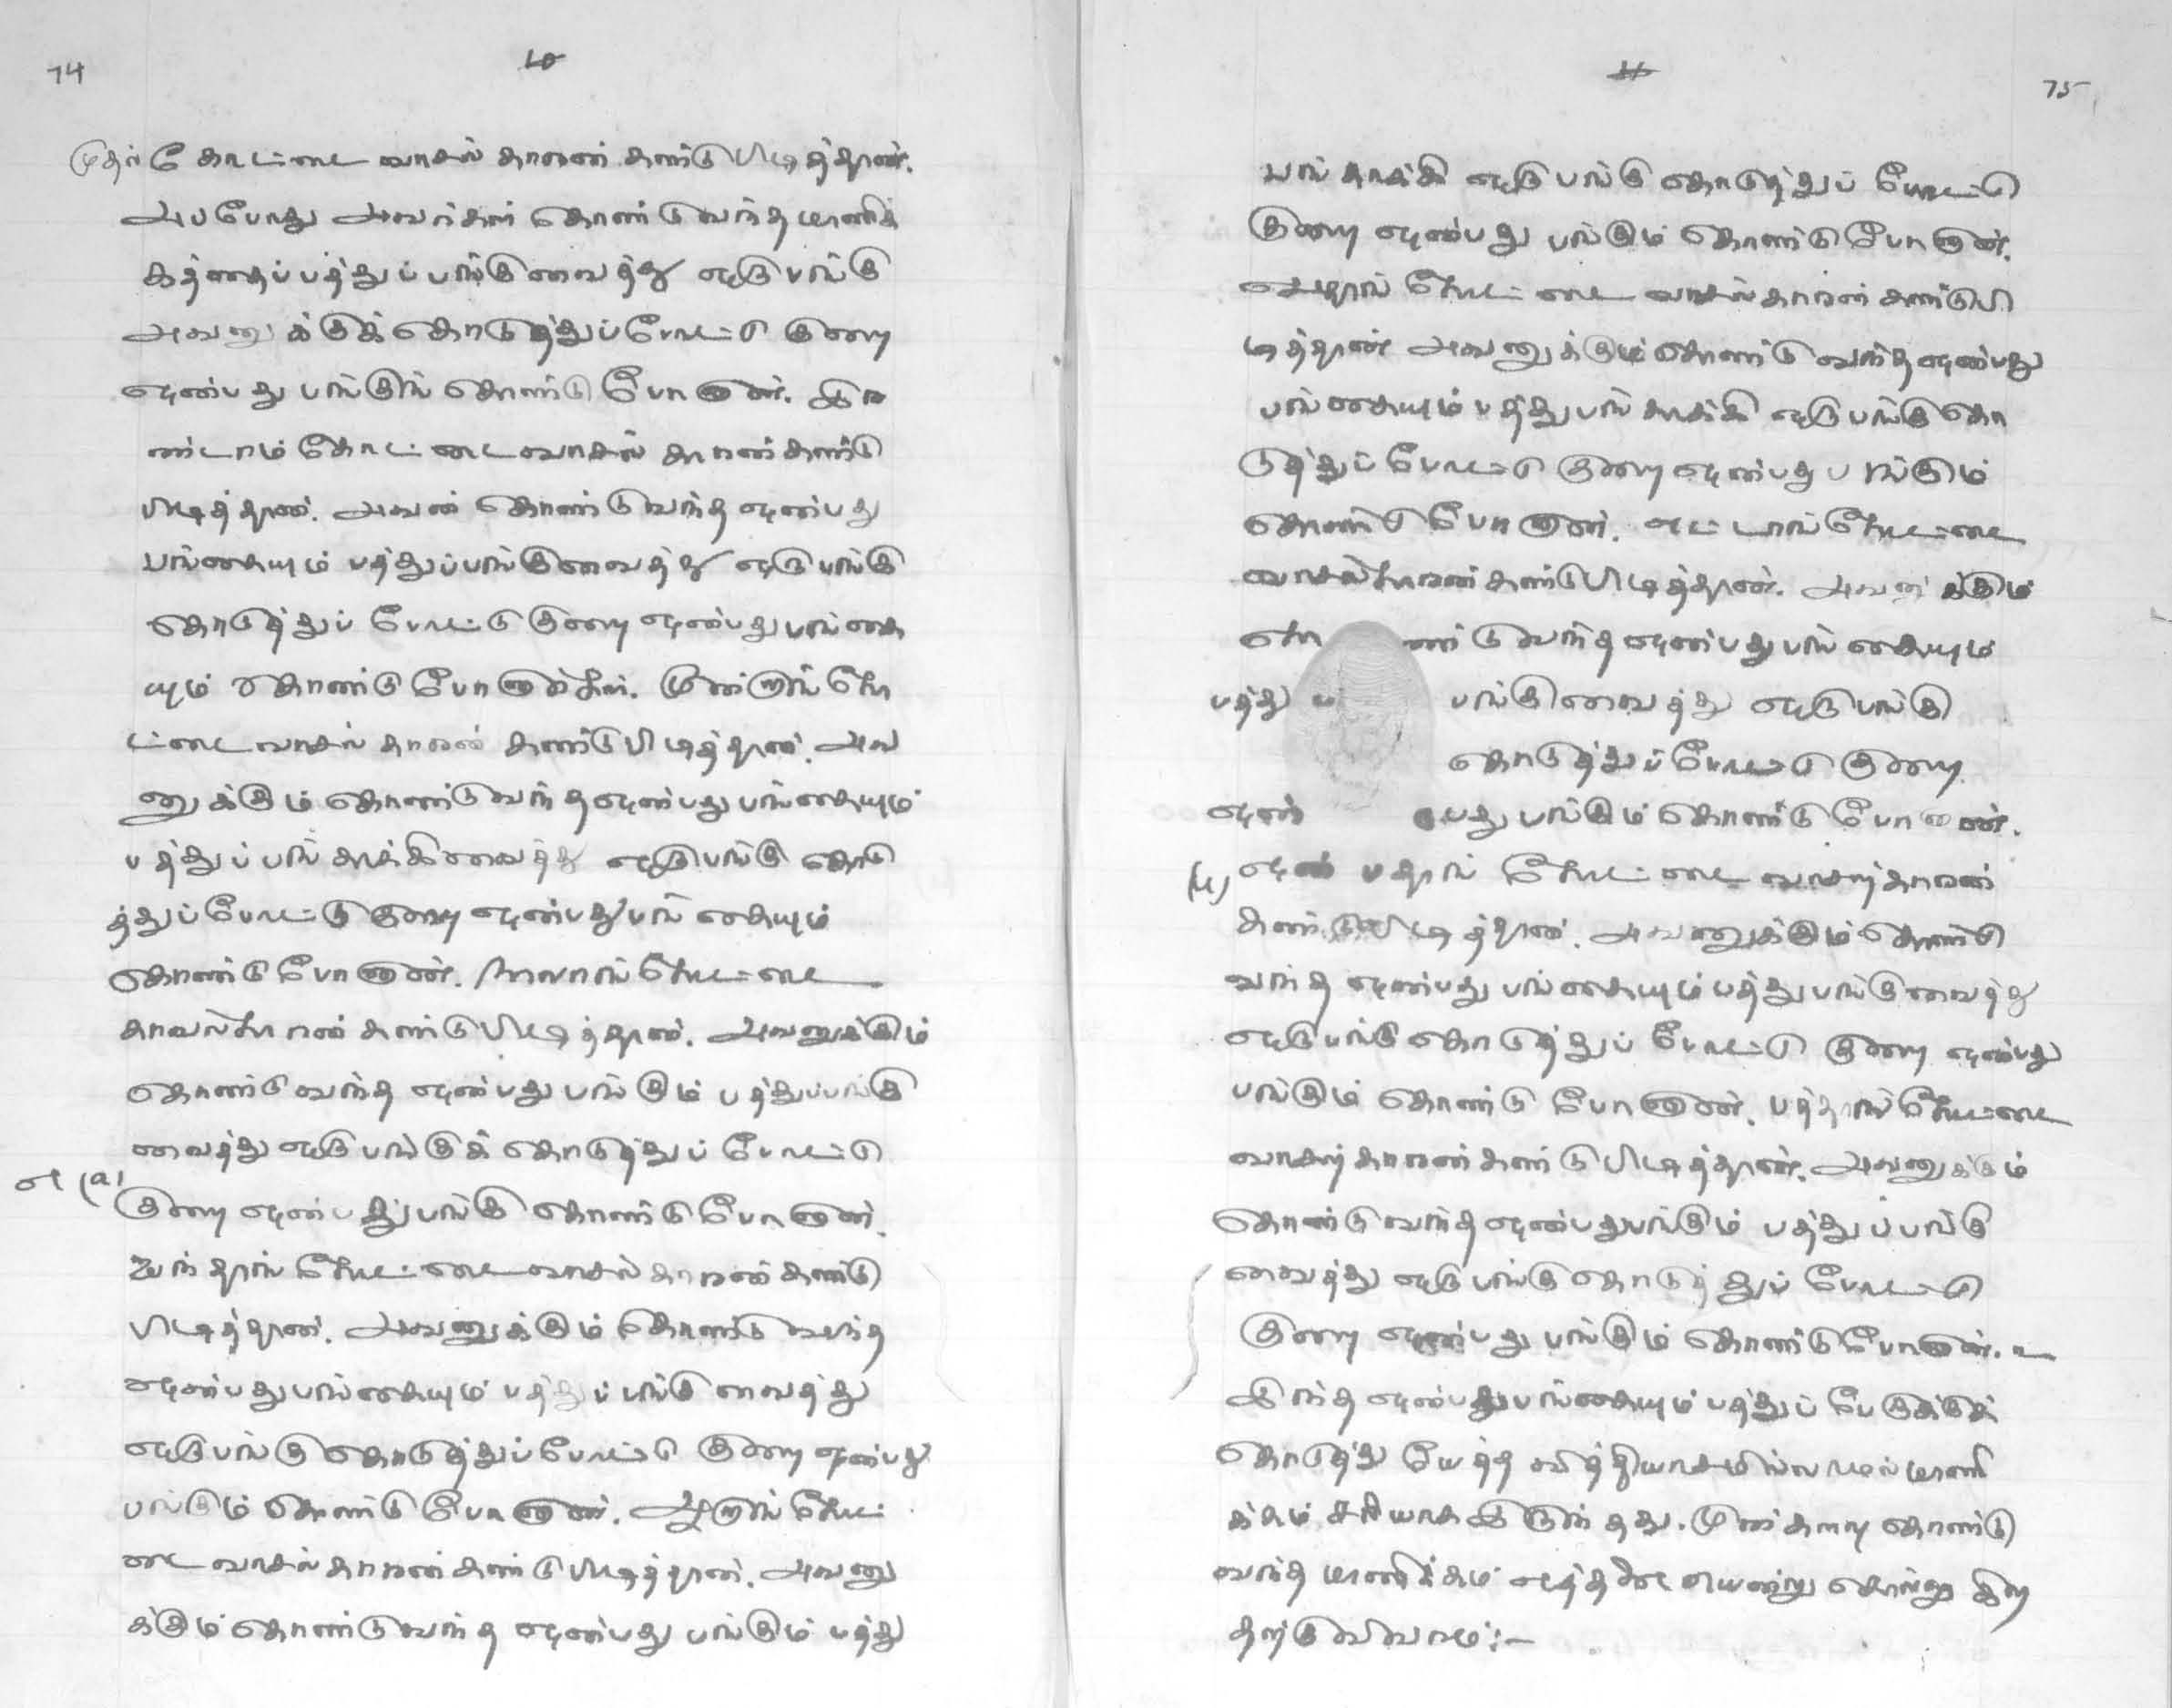 74
10
முதல் கோட்டை வாசல் காரன் கண்டு பிடித்தான்.
அப்போது அவர்கள் கொண்டு வந்த மாணிக்
கத்தைப் பத்துப் பங்கு வைத்து ஒரு பங்கு
அவனுக்குக் கொடுத்துப்போட்டு குறை
ஒன்பது பங்குங் கொண்டு போனான். இர
ண்டாம் கோட்டை வாசல் காரன் கண்டு
பிடித்தான். அவன் கொண்டுவந்த ஒன்பது
பங்கையும் பத்துப்பங்கு வைத்து ஒரு பங்கு
கொடுத்துப் போட்டு குறை ஒன்பது பங்கை
யும் கொண்டு போனார்கள். முன்றாங் கோ
ட்டை வாசல் காரன் கண்டு பிடித்தான். அவ
னுக்கும் கொண்டுவந்த ஒன்பது பங்கையும்
பத்துப் பங்காக்கி வைத்து ஒரு பங்கு கொடு
த்துப்போட்டு குறை ஒன்பது பங்கையும்
கொண்டு போனான். நாலாங் கோட்டை
காவல்காரன் கண்டு பிடித்தான். அவனுக்கும்
கொண்டு வந்த ஒன்பது பங்கும் பத்துப்பங்கு
வைத்து ஒரு பங்குக் கொடுத்துப் போட்டு
குறை ஒன்பது பங்கு கொண்டு போனான்.
ஐந்தாங் கோட்டை வாசல் காரன் கண்டு
பிடித்தான். அவனுக்கும் கொண்டு வந்த
ஒன்பது பங்கையும் பத்துப் பங்கு வைத்து
ஒரு பங்கு கொடுத்துப்போட்டு குறை ஒன்பது
பங்கும் கொண்டு போனான். ஆறாங் கோட்
டை வாசல் காரன் கண்டு பிடித்தான். அவனு
க்கும் கொண்டுவந்த ஒன்பது பங்கும் பத்து
11
75
பங்காக்கி ஒரு பங்கு கொடுத்துப் போட்டு
குறை ஒன்பது பங்கும் கொண்டு போனான்.
ஏழாங் கோட்டை வாசல் காரன் கண்டுபி
டித்தான் அவனுக்கும் கொண்டு வந்த ஒன்பது
பங்கையும் பத்து பங்காக்கி ஒரு பங்கு கொ
டுத்துப் போட்டு குறை ஒன்பது பங்கும்
கொண்டு போனான். எட்டாங் கோட்டை
வாசல்காரன் கண்டு பிடித்தான். அவனுக்கும்
கொ ண்டுவந்த ஒன்பது பங்கையும்
பத்து ப் பங்கு வைத்து ஒரு பங்கு
கொடுத்துப் போட்டு குறை
ஒன் பது பங்கும் கொண்டு போனான்.
ஒன்பதாங் கோட்டை வாசற்காரன்
கண்டு பிடித்தான். அவனுக்கும் கொண்டு
வந்த ஒன்பது பங்கையும் பத்து பங்கு வைத்து
ஒரு பங்கு கொடுத்துப் போட்டு குறை ஒன்பது
பங்கும் கொண்டு போனான். பத்தாங் கோட்டை
வாசற் காரன் கண்டு பிடித்தான். அவனுக்கும்
கொண்டு வந்த ஒன்பது பங்கும் பத்துப் பங்கு
வைத்து ஒரு பங்கு கொடுத்துப் போட்டு
குறை ஒன்பது பங்கும் கொண்டு போனான்.
இந்த ஒன்பது பங்கையும் பத்துப் பேருக்குக்
கொடுத்து யேத்த வித்தியாசமில்லாமல் மாணி
க்கம் சரியாக இருந்தது. முன் களவு கொண்டு
வந்த மாணிக்கம் எத்தனை யென்று சொல்லு இற
தற்கு விவரம்:-